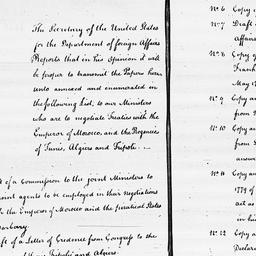 The Secretary of the United States
for the Department of foreign Affairs
Reports that in his Opinion it will
be proper to transmit the Papers here
unto annexed and enumerated in
the following List, to our Ministers
who are to negotiate Treaties with the
Emperor of Morocco, and the Regencies
of Tunis, Algiers and Tripoli. —
t of a Commission to the joint Ministers to
oint agents to be employed in their negotiations
th the Emperor of Morocco and the piratical States
arbary.
ft of a Letter of Credence from Congress to the
Tripoli and Algiers.
No. 6 Copy
No. 7 Draft
Affairs
No. 8 Copy
Frank
May 17
No. 9 Copy
from
No. 10 Copy
from
answer
No. 11 Copy
1779 of
act as
in his
No. 12 Copy
Declar